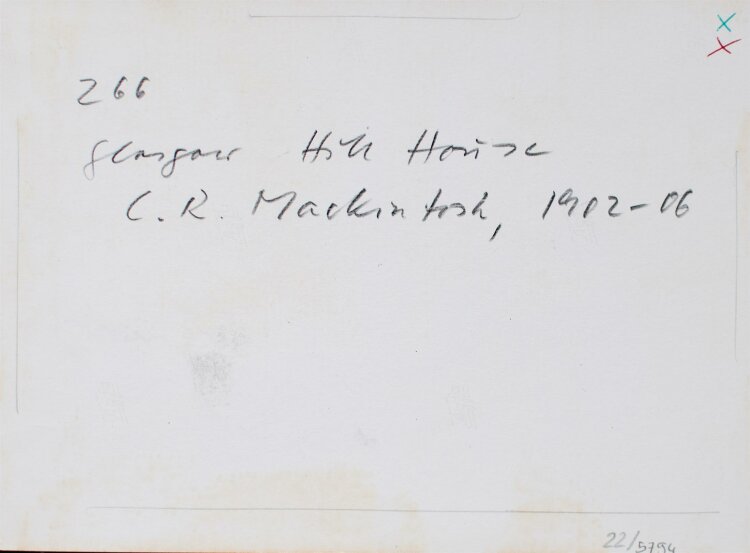 266
Glasgow Hill House
C. R. Mackintosh, 1902-06
22/5794